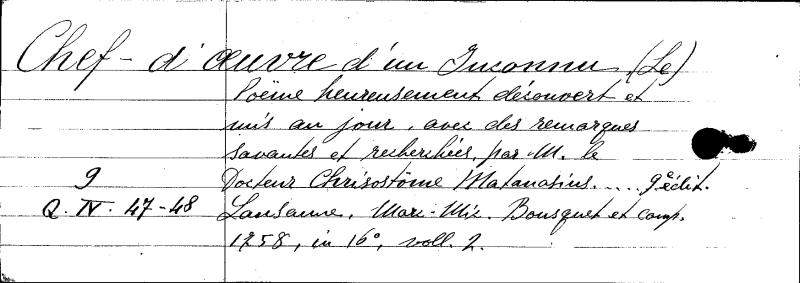 Chef-d'œuvre d'un Inconnu (Le)
Poëme heureusement découvert et
mis au jour, avec des remarques
savantes et recherchées, par M. le
9 Docteur Chrisostôme Matanasius..... 9e édit.
Q. IV. 47-48 Lausanne, Marc-Mic. Bousquet et comp.
1758, in 16°, voll. 2.